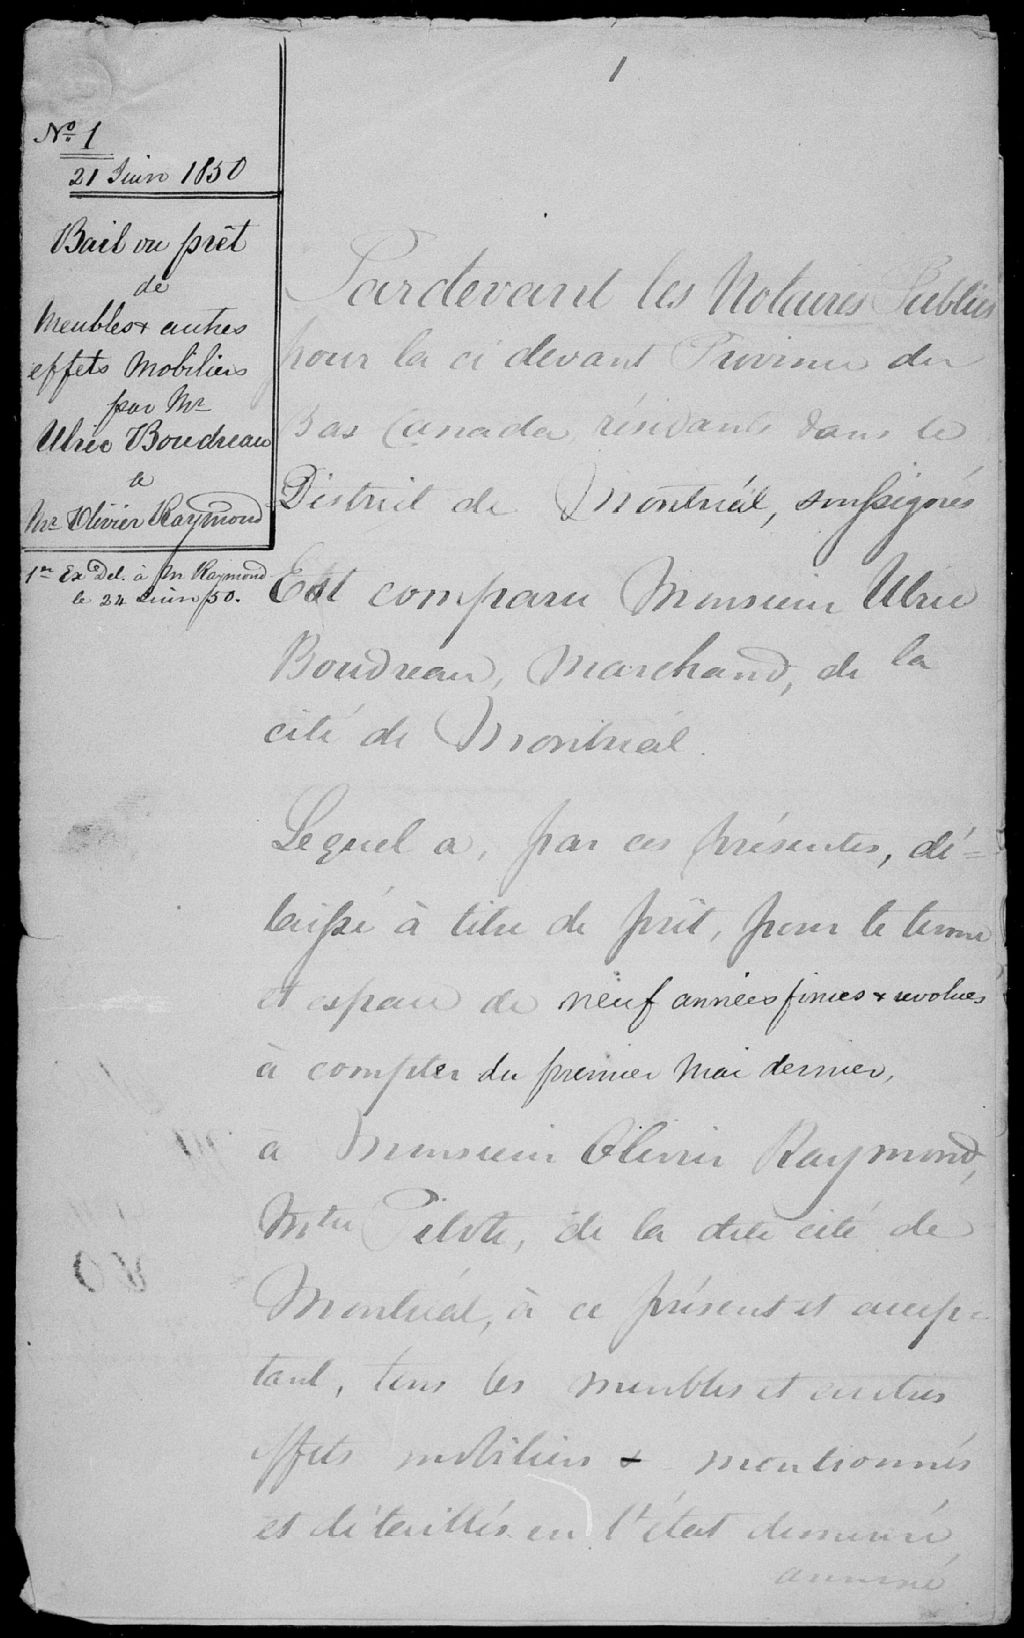 1
No. 1
21 Juin 1850
Bail ou prêt
de
Meubles & autres
effets Mobiliers
par Mr
Ulric Boudreau
à
Mr Olivier Raymond
1re Ex Del. à M Raymond
le 24 Juin /50.
Pardevant les Notaires Publics
pour la ci devant Province du
Bas Canada, résidants dans le
District de Montréal, soussignés
Est comparu Monsieur Ulric
Boudreau, Marchand, de la
cité de Montréal.
Lequel a, par ces présentes, dé-
laissé à titre de prêt, pour le terme
et espace de neuf années finies & revolues
à compter du premier Mai dernier,
à Monsieur Olivier Raymond,
Mtre Pilote, de la dite cité de
Montréal, à ce présent et accep-
tant, tous les meubles et autres
effets mobiliers & mentionnés
et détaillés en l'état demeuré
annexé